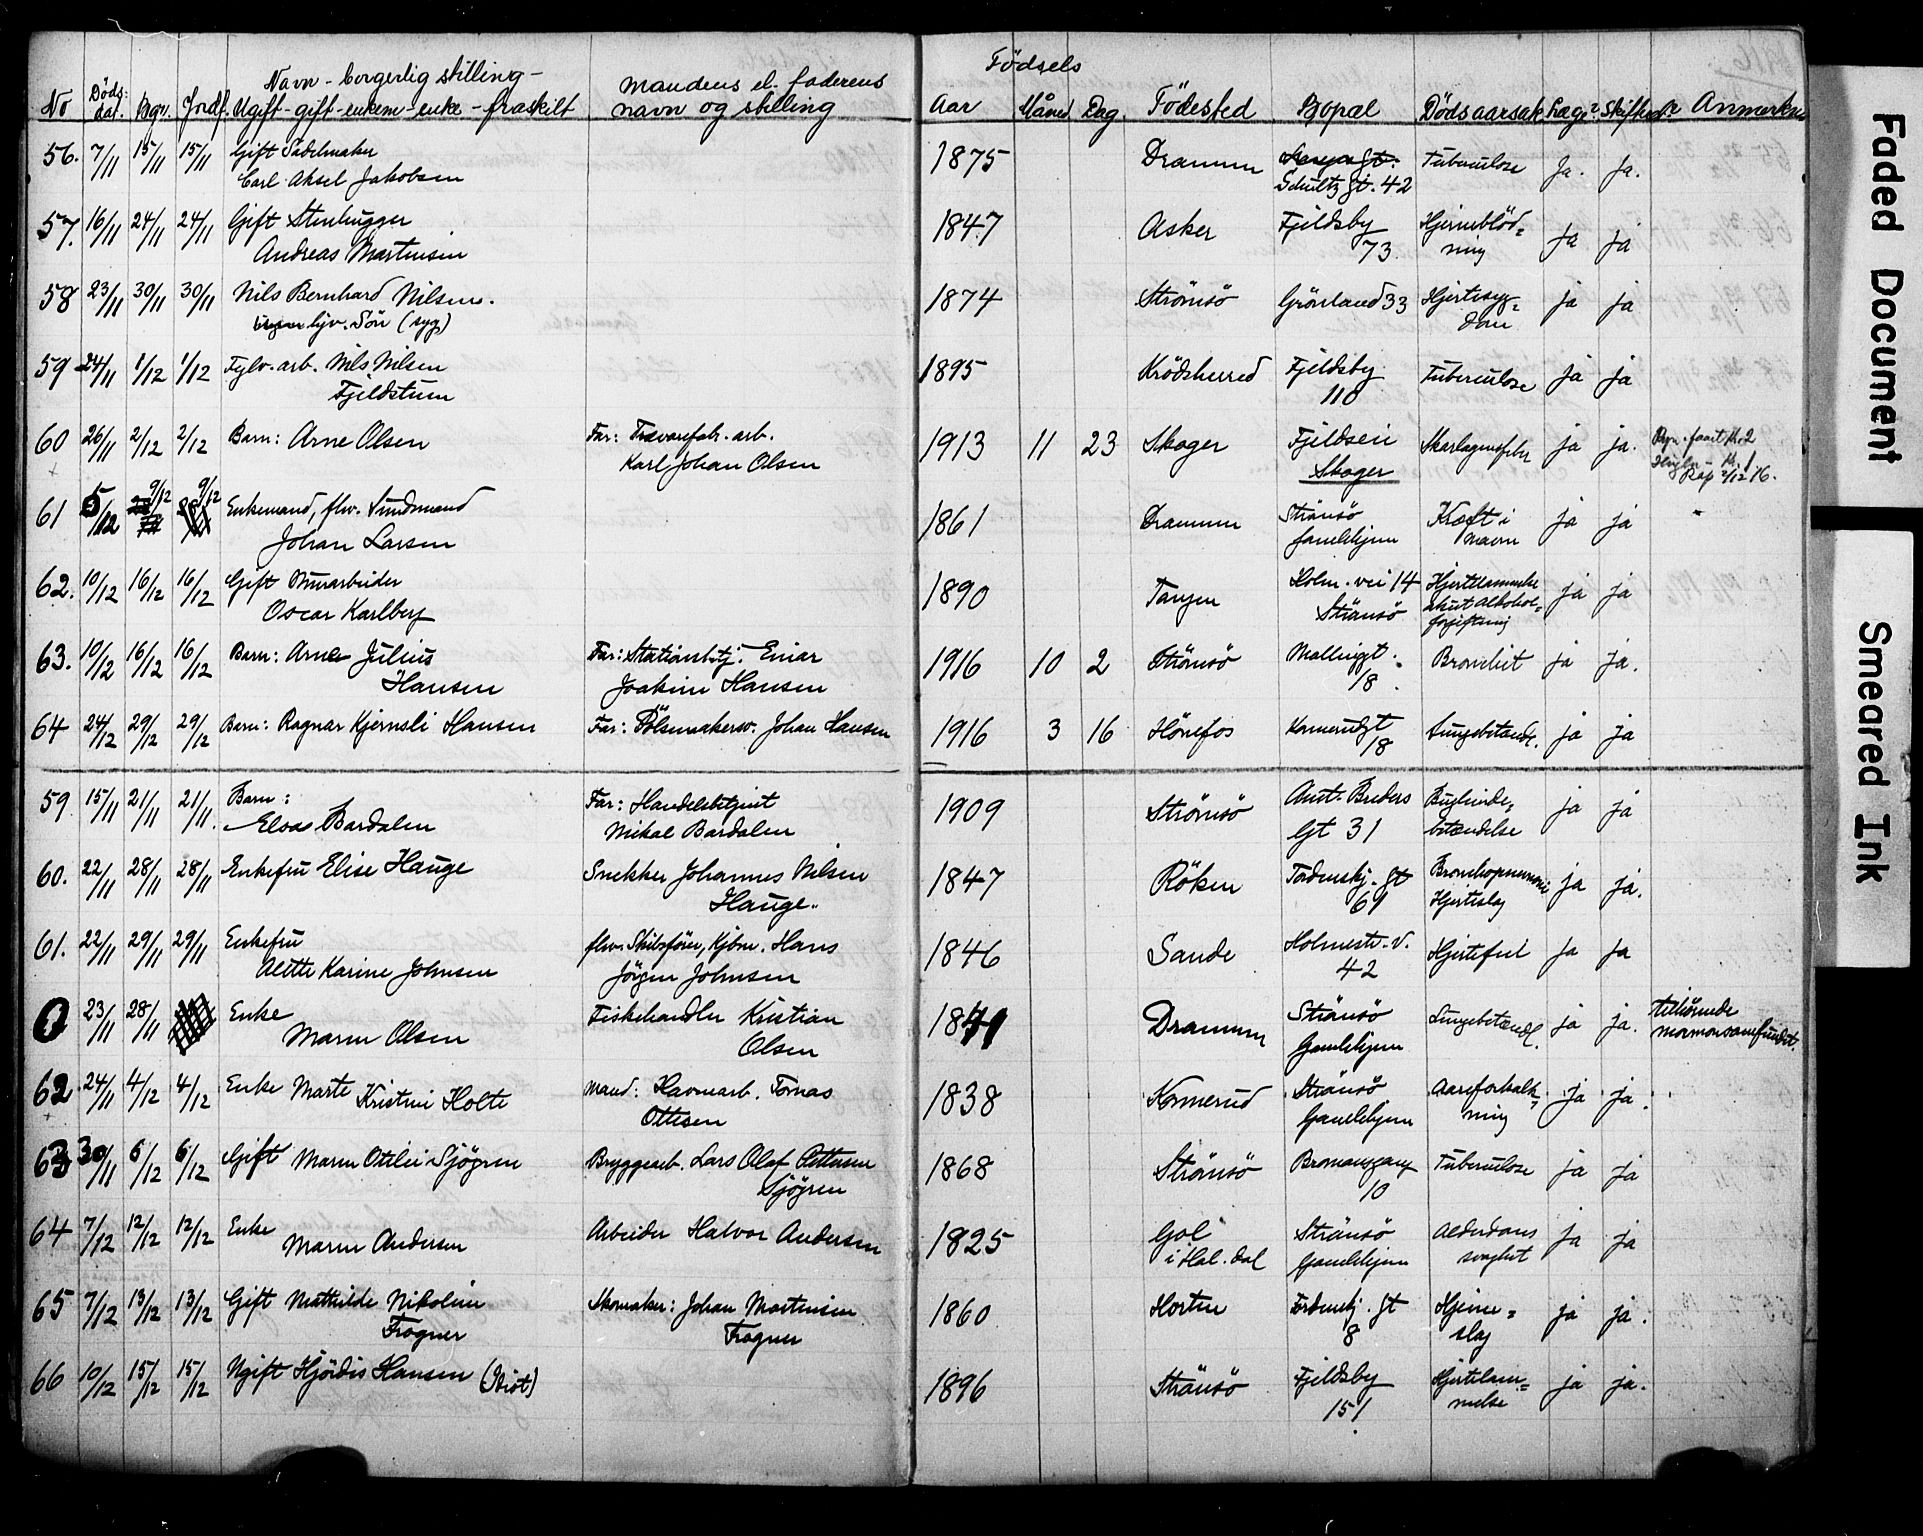 Navn - borgerlig stilling -
Födsels
No Döds dat. Bgr. Jordf. Ugift - gift - enkem - enke - fraskilt
mandens el. faderens navn og stilling
Aar Måned Dag. Födested Bopæl Dödsaarsak Læge? Skifte Anmerkn
56. 7/11 15/11 15/11 Gift Sadelmaker 1875 Drammen Tuberculose Ja. ja.
Carl Aksel Jakobsen Schultz gt. 42
57. 16/11 24/11 24/11 Gift Stenhugger 1847 Asker Fjeldsby Hjerneblöd= ja ja
Andreas Martinsen 73. ning
58 23/11 30/11 30/11 Nils Bernhard Nilsen. 1874 Strömsö Grönland 33 Hjertesyg= ja ja
Sön (syg) dom
59 24/11 1/12 1/12 Fylv. arb. Nils Nilsen 1895 Krödsherred Fjeldsby Tuberculose ja ja
Fjeldstuen 110
60 26/11 2/12 2/12 Barn: Arne Olsen Far: Trævarefabr. arb. 1913 11 23 Skoger Fjeldseie Skarlagensfeber ja ja.
Karl Johan Olsen Skoger Rap 2/12 16.
61 5/12 9/12 9/12 Enkemand, fhv. Sundmand 1861 Drammen Strömsö Kræft i ja ja
Johan Larsen Gamlehjem maven
62. 10/12 16/12 16/12 Gift Murarbeider 1890 Tangen Holm. vei 14 Hjertelammelse ja ja
Oscar Karlberg Strömsö akut alkohol=
forgiftning
63. 10/12 16/12 16/12 Barn: Arne Julius Far: Stationsbetj. Einar 1916 10 2 Strömsö Mallinggt. Bronchit ja ja.
Hansen Joakim Hansen 18.
64 24/12 29/12 29/12 Barn: Ragnar Kjernsli Hansen Far: Pölsemakersv. Johan Hansen 1916 3 16 Hönefos Konnerudgt 18 Lungebetændl. ja ja
59. 15/11 21/11 21/11. Barn: Far: Handelsbetjent 1909 Strömsö Amt. Breders Bughinde= ja ja
Elsa Bardalen Mikal Bardalen Gt 31 betændelse
60. 22/11 28/11 28/11 Enkefru Elise Hauge Snekker Johannes Nilsen 1847 Röken Tordenskj. gt Bronchopneumonie ja ja.
Hauge.. 61 Hjerteslag
61. 22/11 29/11 29/11 Enkefru fhv. Skibsförer, Kjbm. Hans 1846 Sande Holmestr. v. Hjertefeil ja ja
Alette Karine Johnsen Jörgen Johnsen 42
0 23/11 28/11 Enke Fiskehandler Kristian 1841 Drammen Strömsö Lungebetændl. ja ja. tilhörende
Maren Olsen Olsen Gamlehjem mormonsamfundet.
62 24/11 4/12 4/12 Enke Marte Kristine Holte mand: Havnearb. Tomas 1838 Konnerud Strömsö Aareforkalk= ja ja.
Ottesen Gamlehjem ning
63 30/11 6/12 6/12 Gift Maren Ottilie Sjögren Bryggearb. Lars Olaf Pettersen 1868 Strömsö Bromansgang Tuberculose ja ja
Sjögren 10
64 7/12 12/12 12/12 Enke Arbeider Halvor Andersen 1825 Gol Strömsö Alderdoms ja ja
Maren Andersen i Hal. dal Gamlehjem svaghet
65 7/12 13/12 13/12 Gift Mathilde Nikoline Skomaker: Johan Martinsen 1860 Horten Tordenskj. gt Hjerne= ja ja.
Frogner Frogner 8 slag
66 10/12 15/12 15/12 Ugift Hjördis Hansen (Idiot) 1896 Strömsö Fjeldsby Hjertelam= ja ja.
151 melse
Faded Document
Smeared Ink